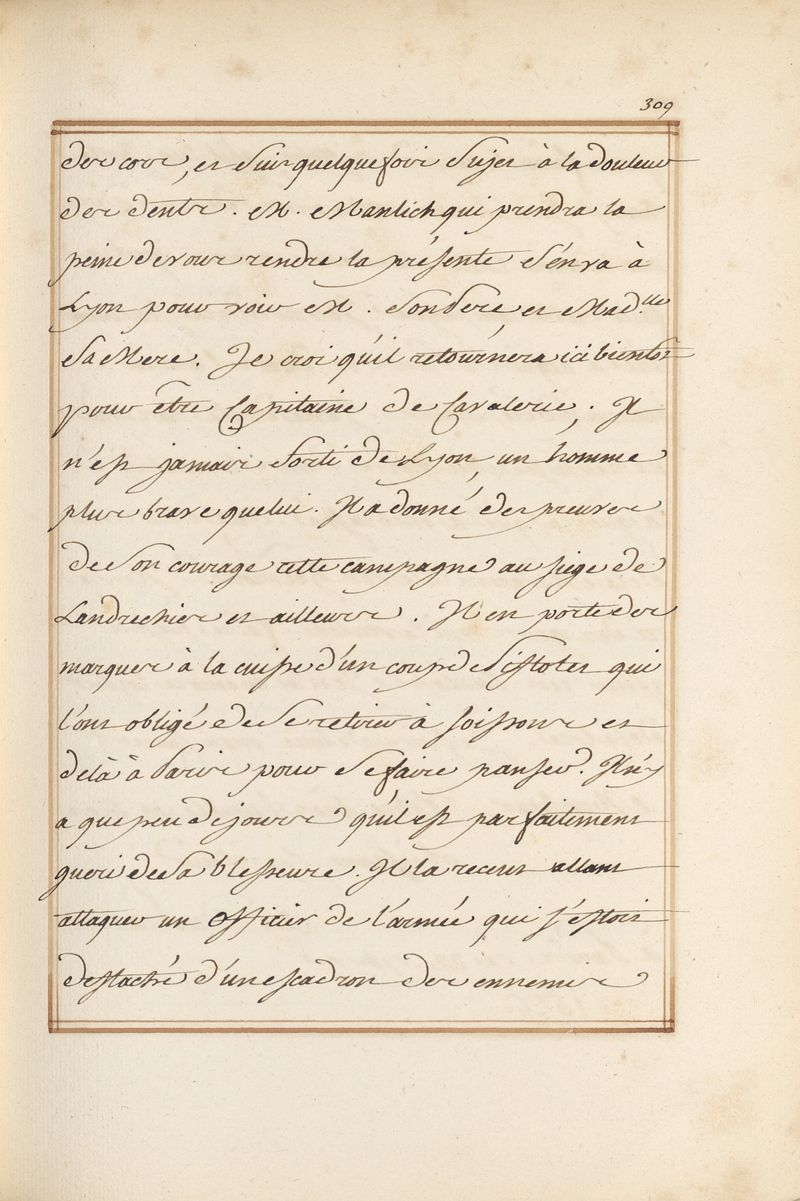 309
des cors, et suis quelquefois sujet à la douleur
des dents. M. Manlich qui prendra la
peine de vous rendre la présente s'en va à
Lyon pour voir M. son Pere et Mad.lle
sa Mere. Je croi qu'il retournera ici bientôt
pour être Capitaine de Cavalerie. Il
n'est jamais sorti de Lyon, un homme
plus brave que lui. Il a donné des preuves
de son courage cette campagne au siege de
Landrechies et ailleurs. Il en porte des
marques à la cuisse d'un coup de Pistolet qui
l'ont obligé de se retirer à Soissons et
delà à Paris pour se faire panser. Il n'y
a que peu de jours qu'il est parfaitement
gueri de sa blesseure. Il la receut allant
attaquer un Officier de l'armée qui s'estoit
destaché d'un escadron des ennemis